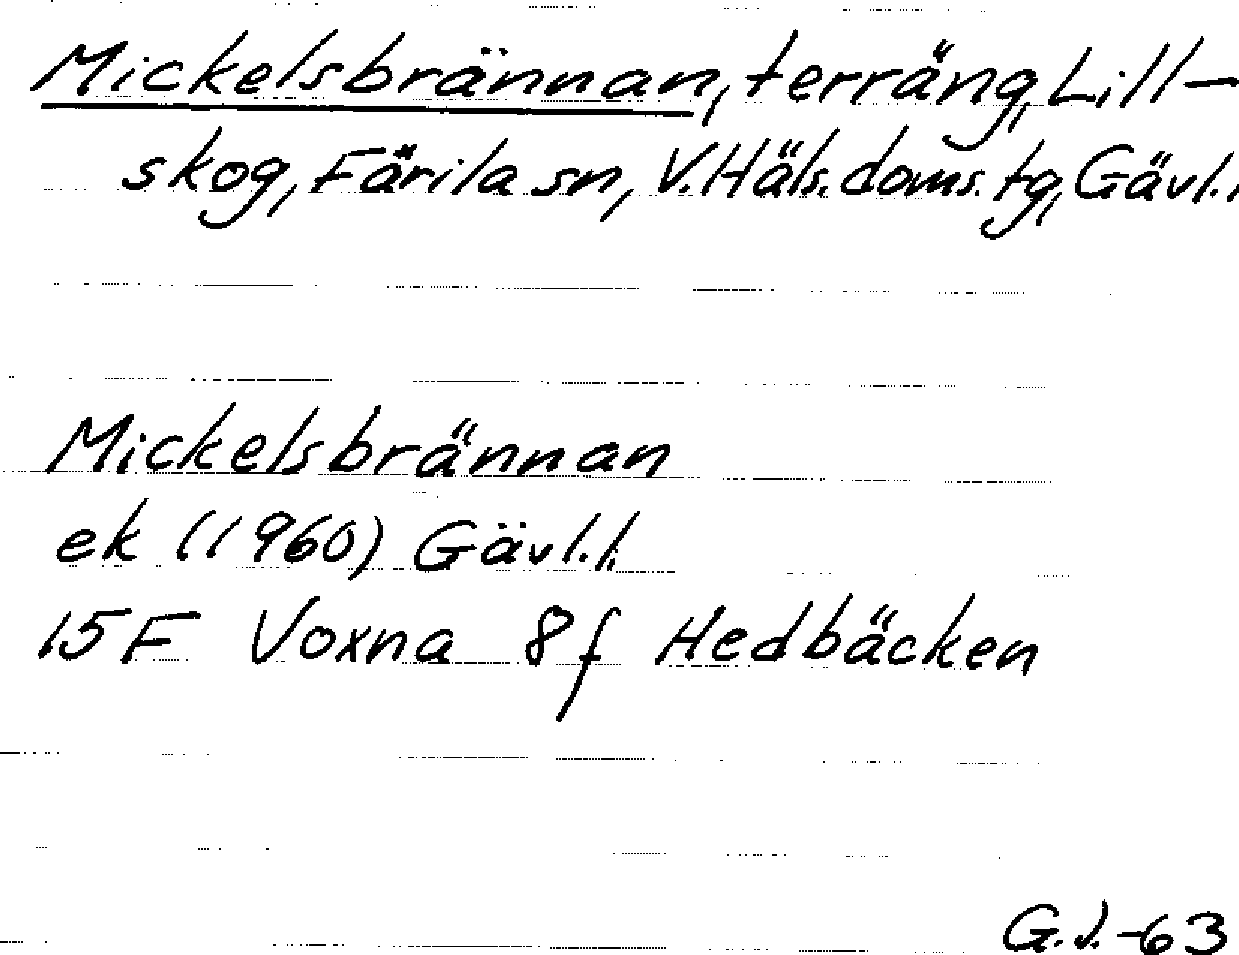 Mickelsbrännan, terräng, Lill-
skog, Färila sn, V. Häls. doms. tg, Gävl. l.
Mickelsbrännan
ek (1960) Gävl. l.
15 F Voxna 8 f Hedbäcken
G. J. -63